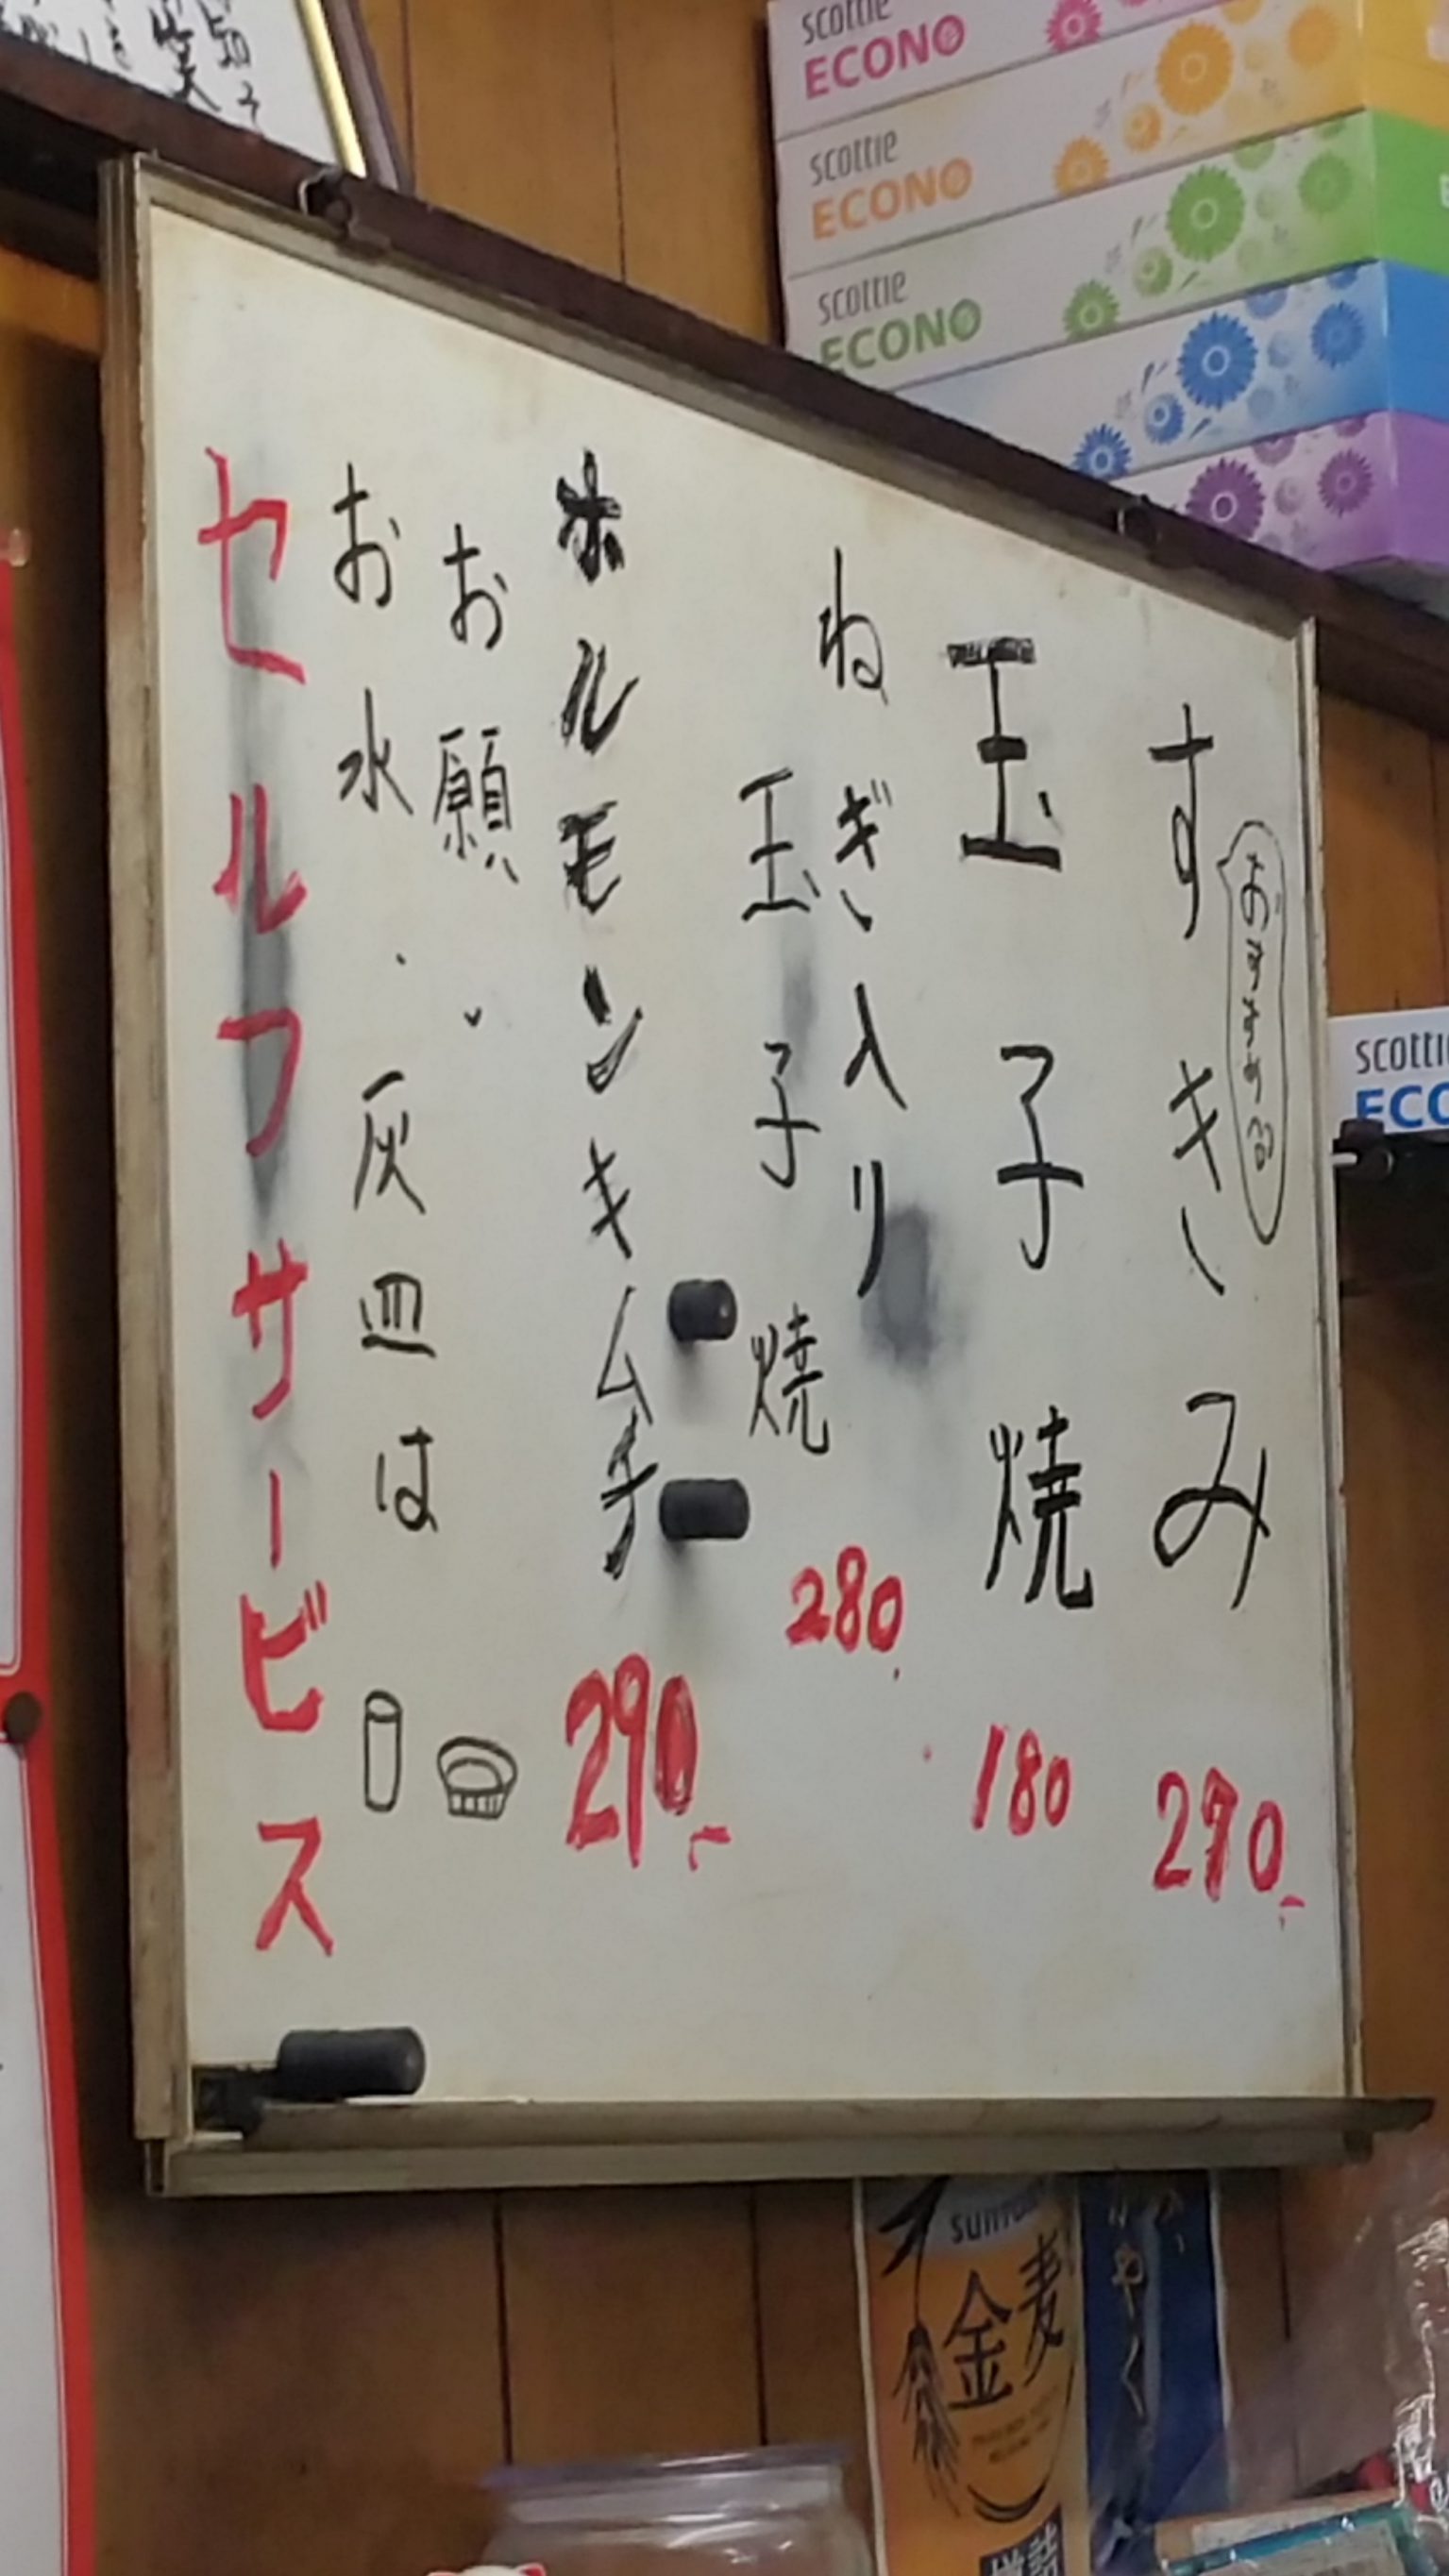 おすすめ品
すきみ
270
玉子焼
180
ねぎ入り
玉子焼
280
ホルモンキムチ
290
お願い
お水・灰皿は
セルフサービス
scottie
ECONO
scottie
ECONO
scottie
ECONO
金麦